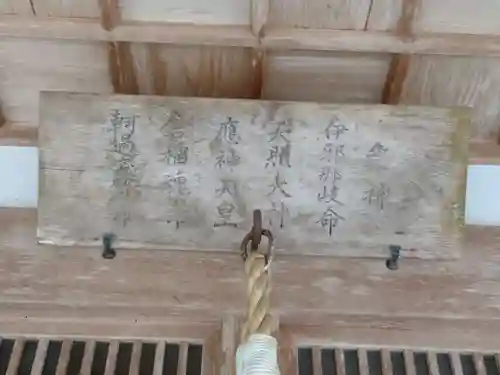 祭神
伊邪那岐命
天照大神
應神天皇
倉稲魂命
軻遇突智命